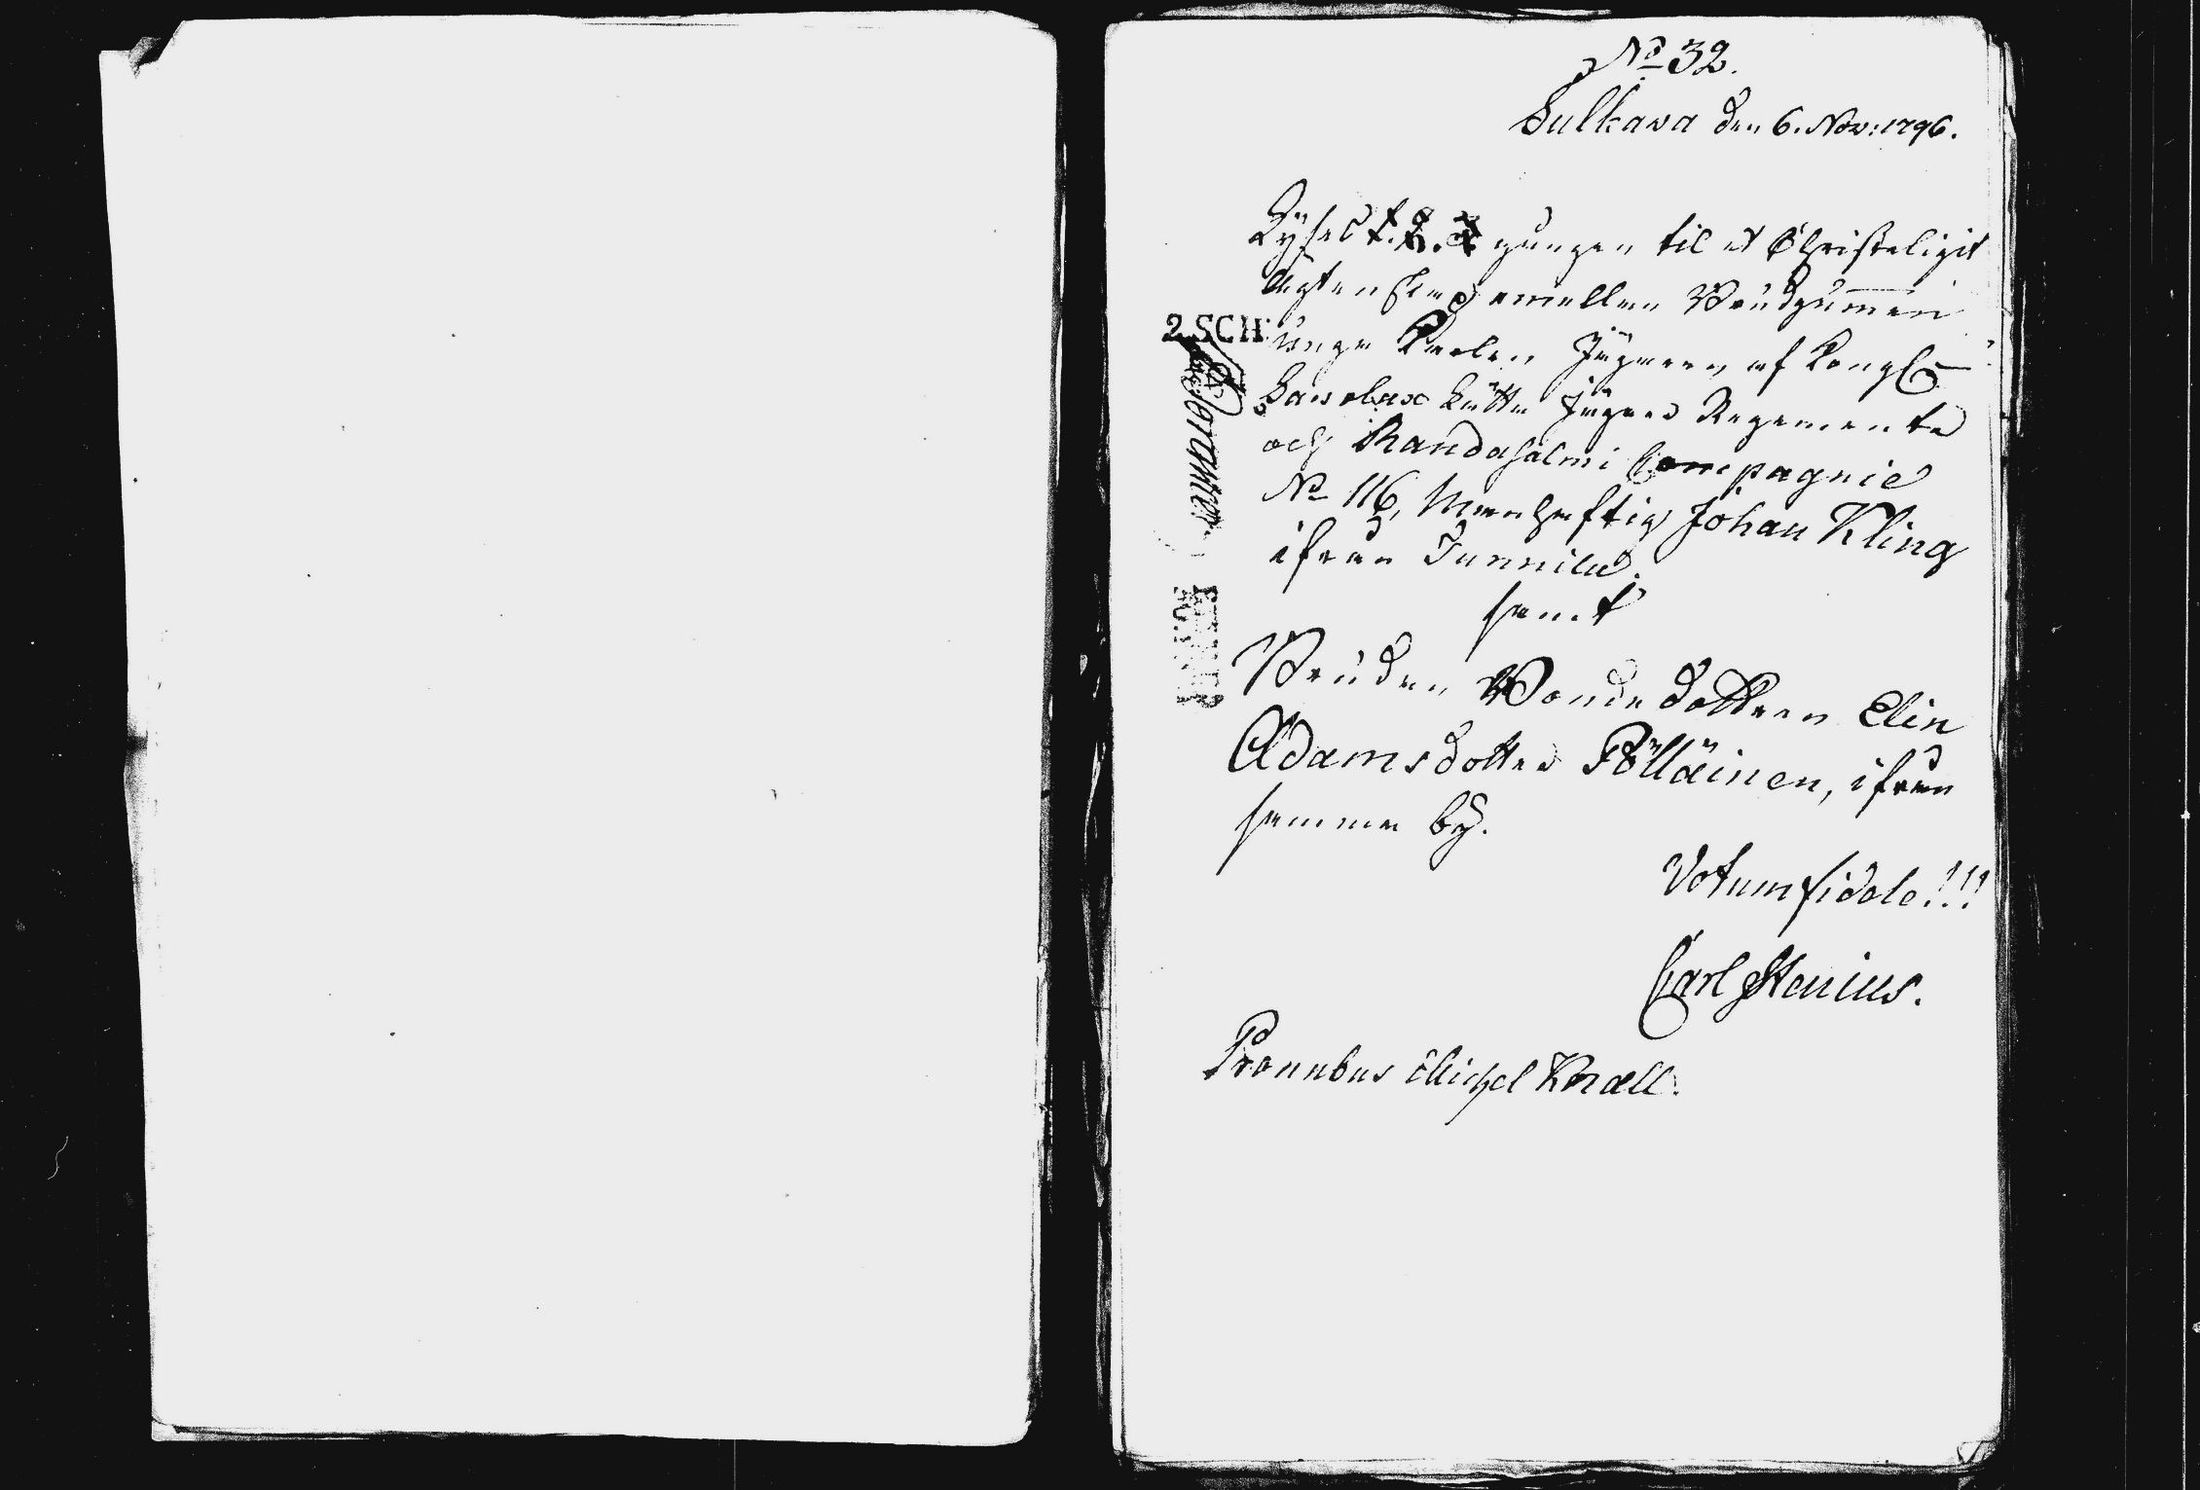 No 32.
Sulkava den 6. Nov: 1796.
Lyses 1. 2. 3 gången til et Christeligit
ägtenskap emellan Brudgummen
2 SCH
unge Karlen Jägaren af Kongl
Savolax Lätta Jägare Regemente
och Randasalmi Compagnie
No 116, Manhaftig Johan Kling
ifrån Tunnila
samt
Bruden Bondedottern Elin
Adamsdotter Pölläinen, ifrån
samma by.
Votum fidele!!!
Carl Stenius.
Pronubus Michel Knall.